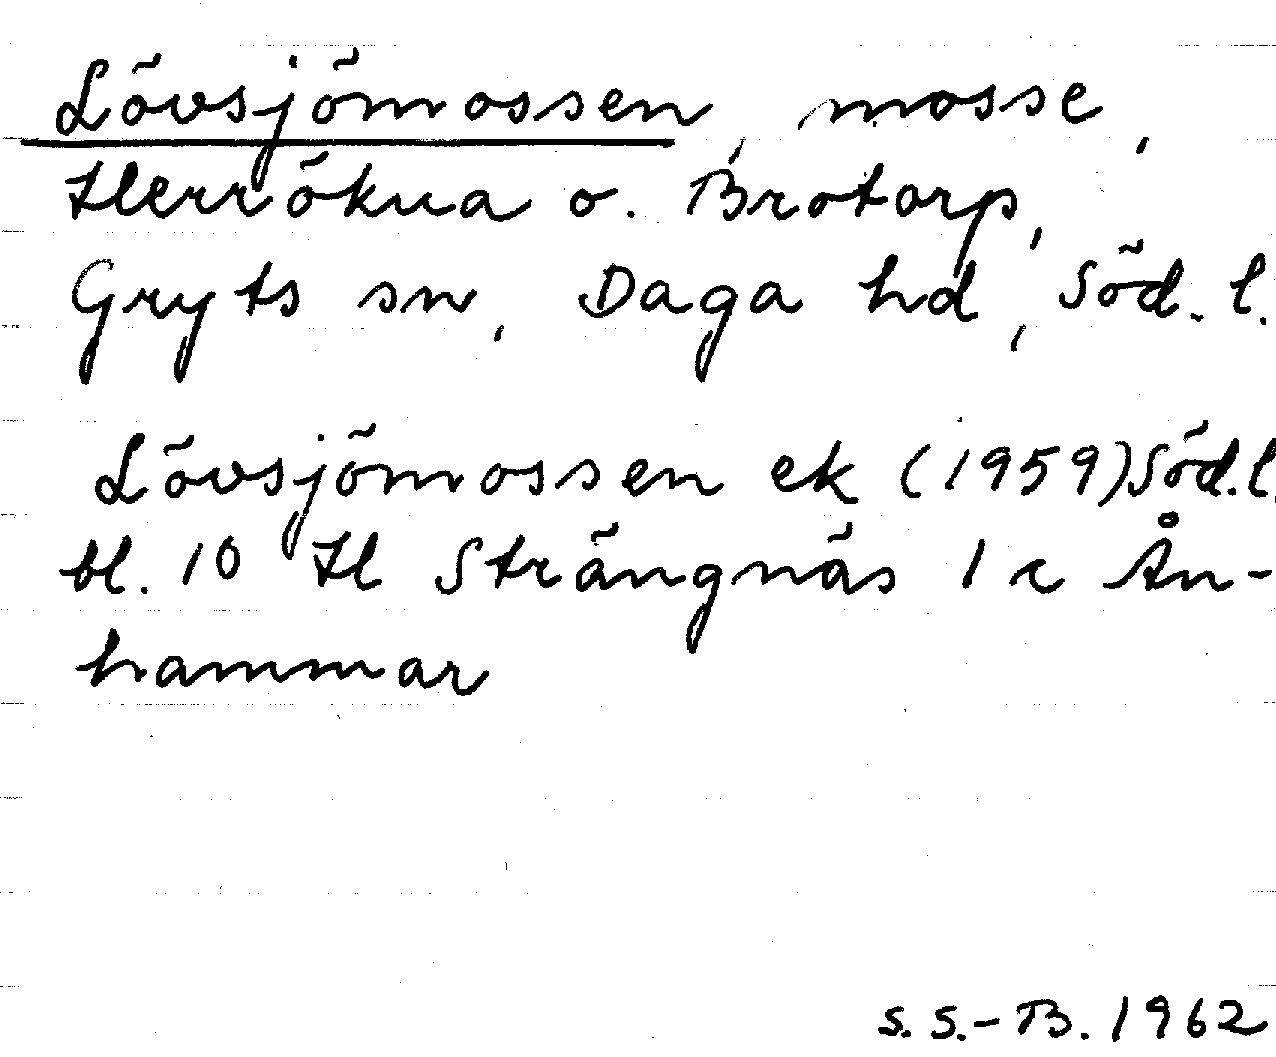 Lövsjömossen, mosse,
Herrökna o. Brotorp,
Gryts sn, Daga hd, Söd. l.
Lövsjömossen ek (1959) Söd. l.
bl. 10 H Strängnäs 1 c Ån-
hammar
S. S.-B. 1962